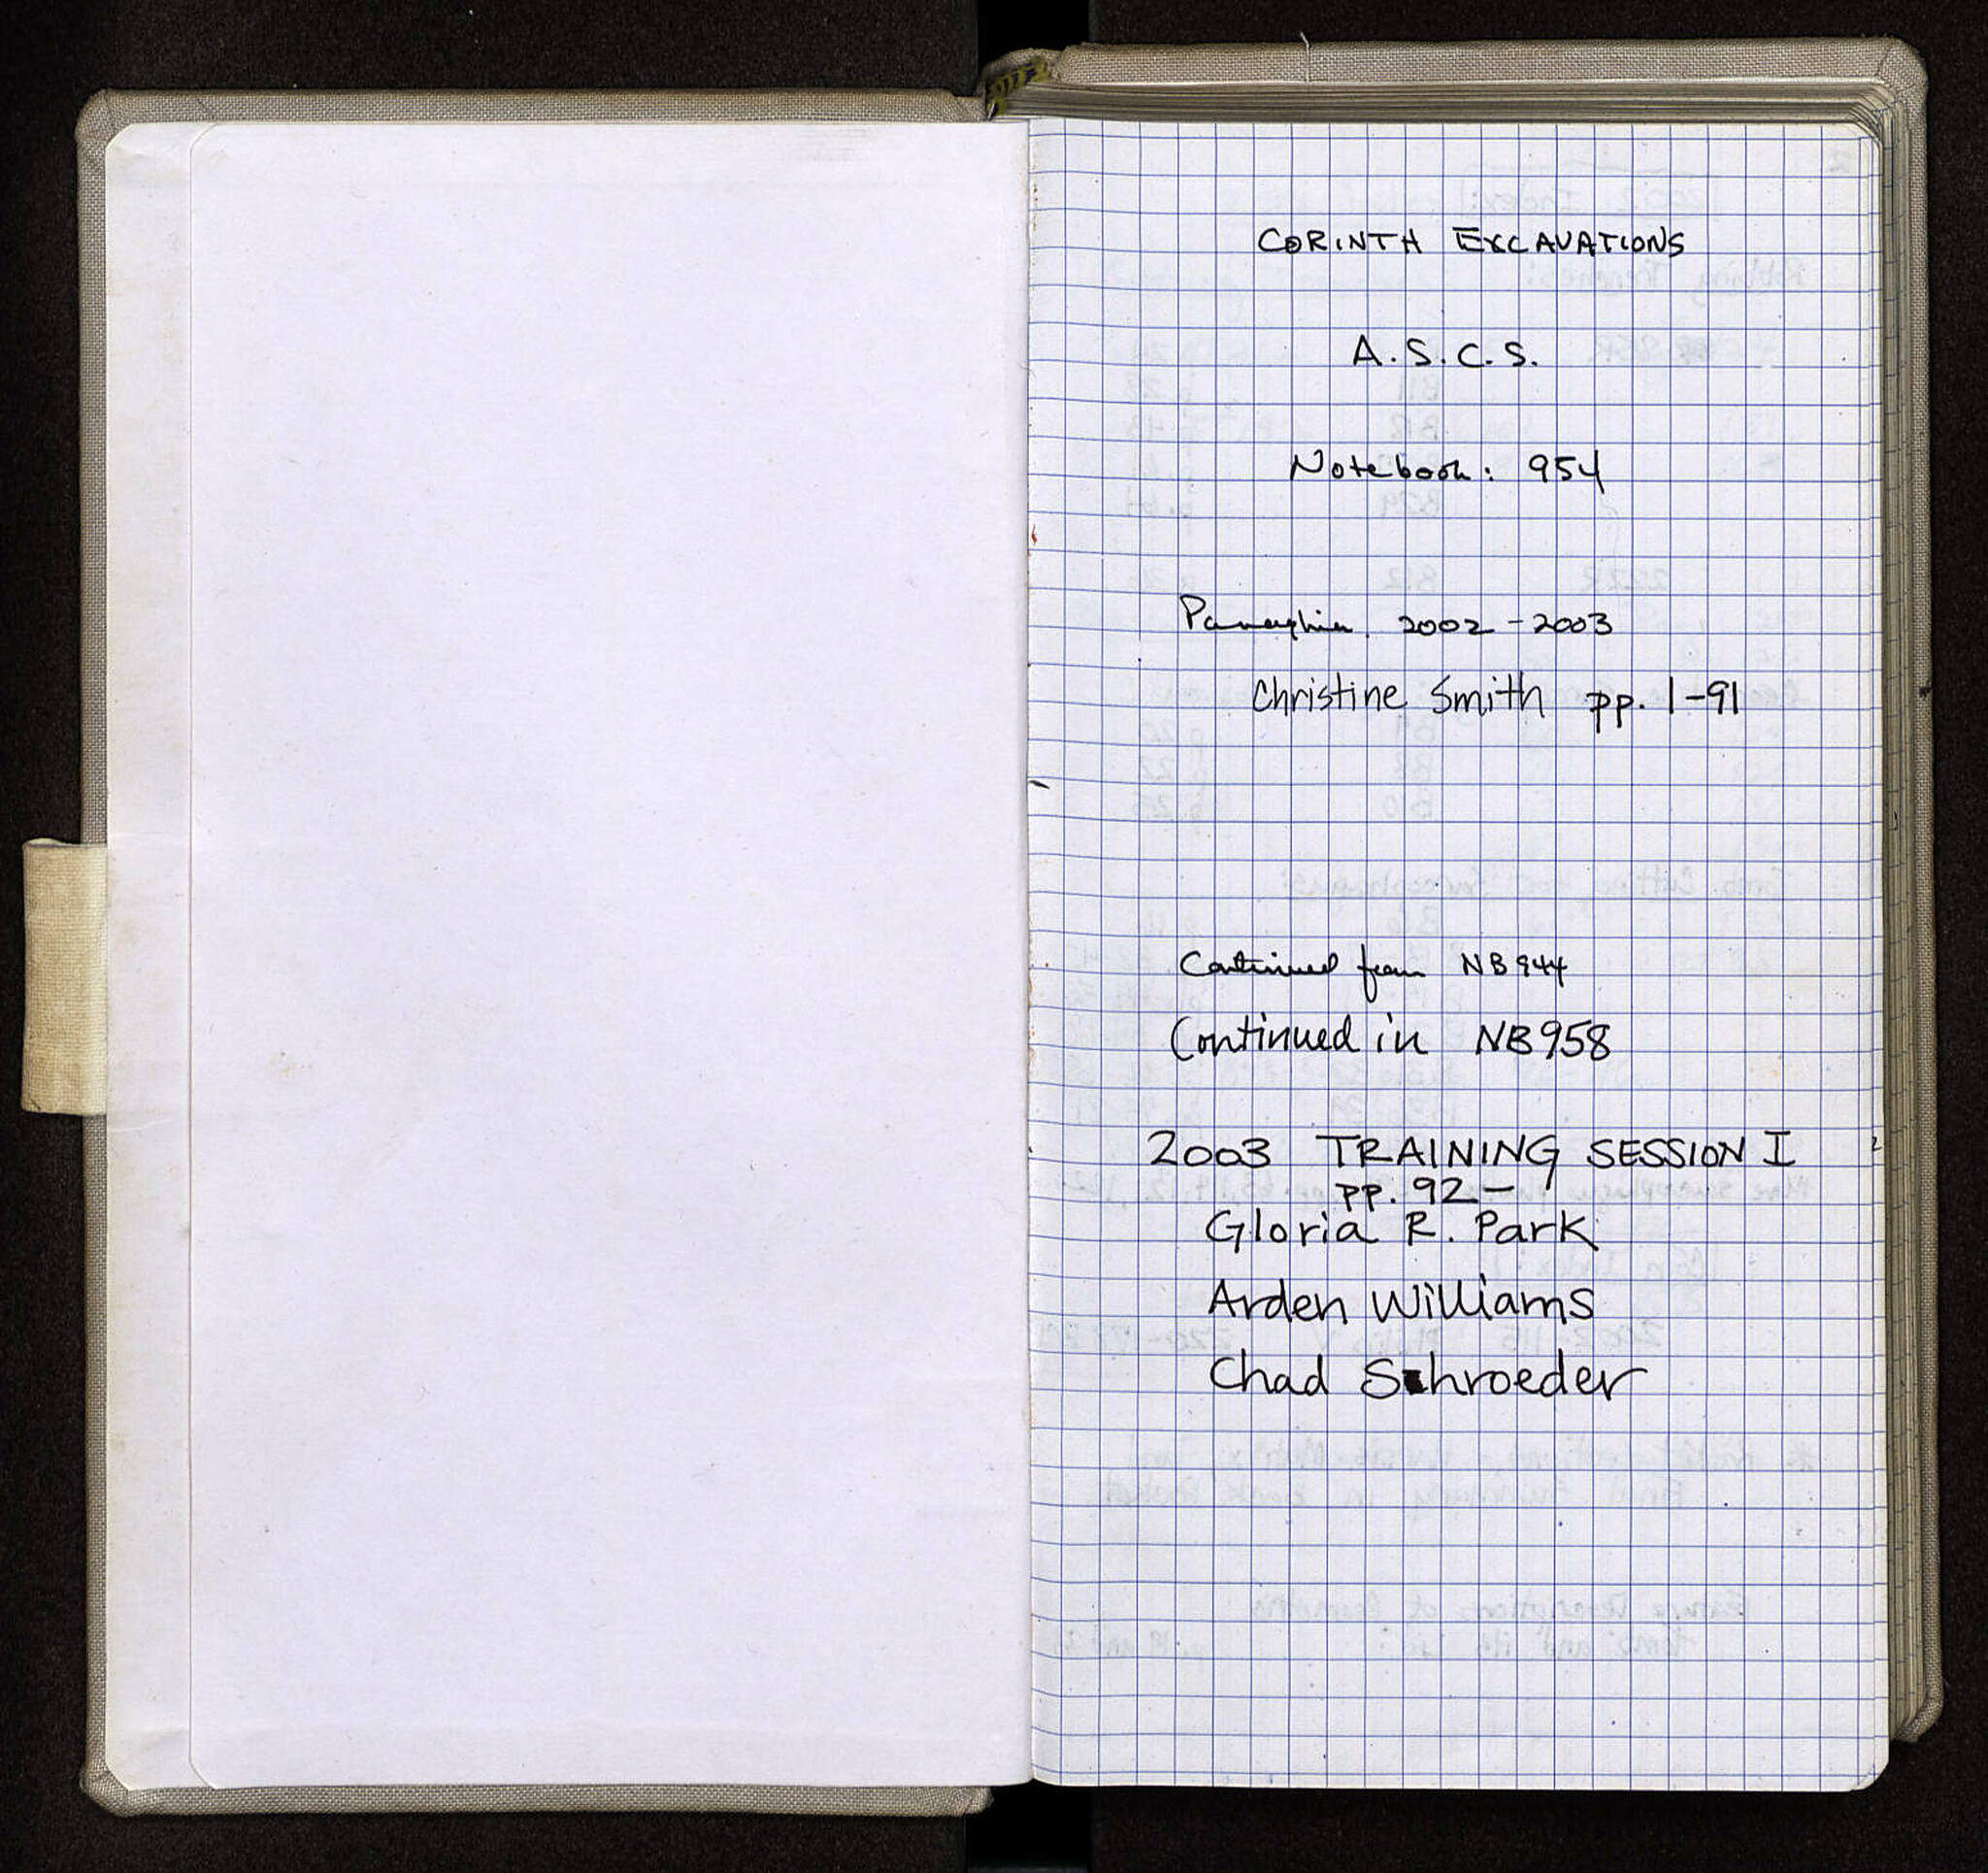 CORINTH EXCAVATIONS
A.S.C.S.
Notebook: 954
Panayhia 2002-2003
Christine Smith pp. 1-91
Continued from NB 944
Continued in NB958
2003 TRAINING SESSION I
pp. 92-
Gloria R. Park
Arden Williams
Chad Schroeder